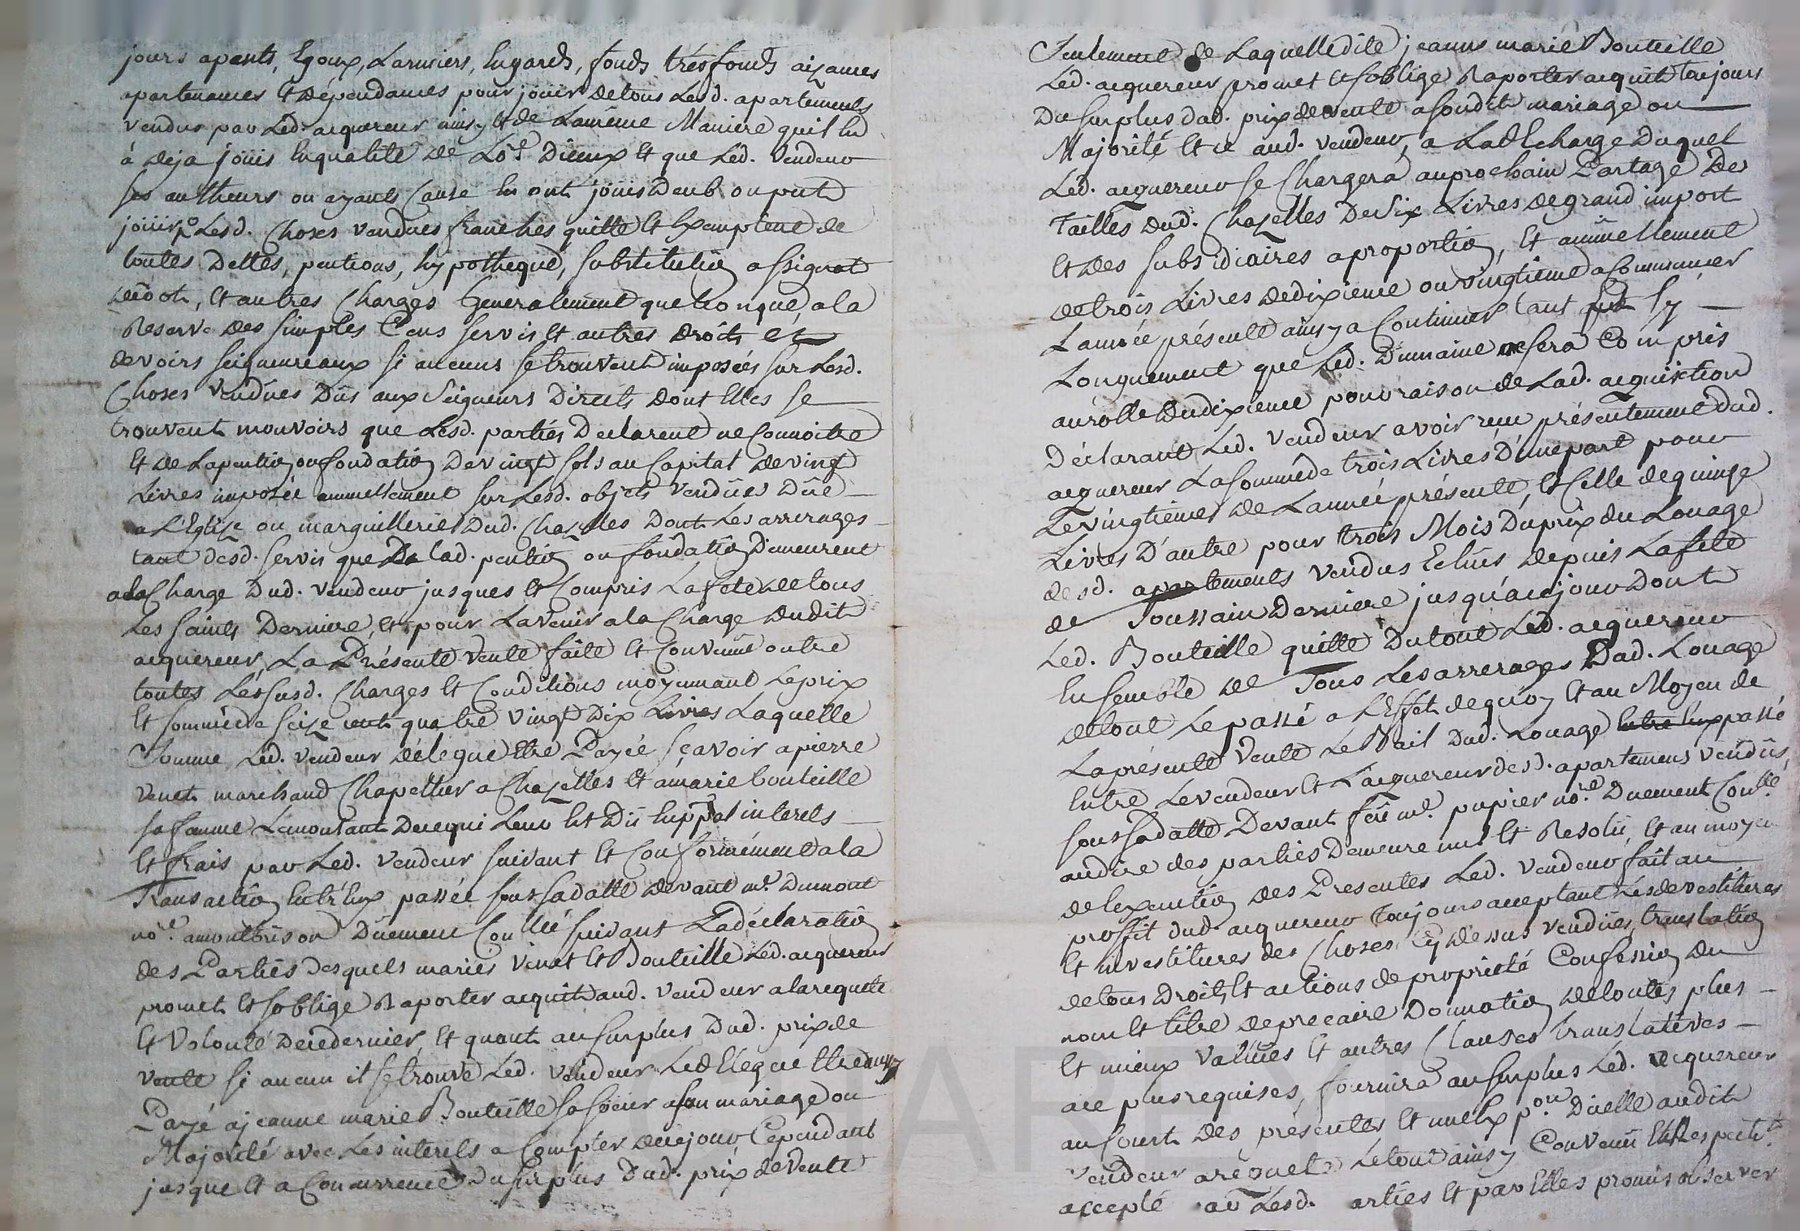 jours apents, Egoux, Larmiers, Engards, fonds tréfonds aizances
apartenances Et dépendances pour jouir de tous Lesd. apartements
vendus par Led. acquereur ainsy Et de La même Maniere quil En
à deja joüis En qualité De Lo.re Dieux Et que Led. Vendeur
ses autheurs ou ayants Cause En ont joüis Deub ou put
joüir Lesd. Choses vendues franches quitte Et Exempte de
toutes Dettes, pentions, hypotheque, substitution assignat
Et autres Charges Generalement quelconque, a la
Reserve Des simples Cens servis Et autres Droits Et
devoirs seigneureaux si aucuns se trouvent imposées sur Lesd.
Choses Vendües Dûs aux Seigneurs Directs dont Elles se
trouvent mouvoirs que Lesd. parties Declarent ne Connoitre
Et De La pention ou fondation De vingt sols au Capital De vingt
Livres imposée annuellement sur Lesd. objets Vendües Düe
a L'Eglise ou marguillerie Dud. Chazelles Dont Les arrerages
tant desd. servis que De lad. pention ou fondation Demeurent
a la Charge Dud. Vendeur jusques Et Compris La fete De tous
Les saints Derniere, Et pour L'avenir a la Charge Dudit
acquereur, La Présente Vente faite Et Convenüe outre
toutes Les susd. Charges Et Conditions moyennant Le prix
Et somme De seize cent quatre vingt Dix Livres Laquelle
somme Led. vendeur delegue Etre Payée sçavoir a pierre
Venet marchand Chapellier a Chazelles Et a marie bouteille
sa femme Le montant De ce qui Leur Est Dû En ppal interets
Et frais par Led. Vendeur suivant Et Conformément a la
Transaction Entr'Eux passée sous sa datte devant me. Dumont
no.re a montbrison Düement Con.llé suivant La déclaration
des Parties desquels mariés Venet Et Bouteille Led. acquereur
promet Et s'oblige Raporter acquit aud. Vendeur a la requete
Et Volonté De ce dernier, Et quant au surplus Dud. prix de
Vente si aucun il se trouve Led. Vendeur Le dElegue Etre
Payé a jeanne marie Bouteille sa sœur a son mariage ou
Majorité avec Les interets a Compter de ce jour Cependant
jusque Et a Concurrence Du surplus Dud. prix de Vente
Seulement De Laquelle dite jeanne marie Bouteille
Led. acquereur promet Et s'oblige Raporter acquit toujours
Du surplus Dud. prix de vente a son dit mariage ou
Majorité Et ce aud. vendeur, a La dEcharge Duquel
Led. acquereur se Chargera au prochain Partage Des
Tailles Dud. Chazelles De six Livres de grand import
Et Des subsidiaires a proportion, Et annuellement
de trois Livres De dixieme ou vingtieme a Commencer
L'année présente ainsy a Continuer tant Et sy
Longuement que Led. Domaine sera Compris
au rolle Du dixieme pour raison de Lad. acquisition
Déclarant Led. Vendeur avoir reçu présentement Dud.
acquereur La somme De trois Livres D'une part pour
Le vingtieme De L'année présente, Et Celle de quinze
Livres D'autre pour trois Mois Du prix du Louage
desd. apartements vendus Echûs depuis La fete
de Toussain Derniere jusqu'a ce jour Dont
Led. Bouteille quitte Du tout Led. acquereur
Ensemble De Tous Les arrerages Dud. Louage
De tout Le passé a L'Effet de quoy Et au Moyen de
La présente Vente Le Bail Dud. Louage passé
Entre Le vendeur Et L'acquereur desd. apartements vendûs
sous sa datte Devant feü me. papier no.re Duement Con.llé
au dire des parties Demeure nul Et Resolû, Et au moyen
de L'execution Des Presentes Led. Vendeur fait au
proffit dud. acquereur Toujours acceptant Les devestitures
Et investitures des Choses Cy Dessus Vendües, translation
de tous Droits Et actions de propriété Confession Du
nom Et titre de precaire Donnation De toutes plus
Et mieux Values Et autres Clauses translatives
a ce plus requises, fournira au surplus Led. acquereur
au Court Des présentes Et une Exp.on D'icelle audit
Vendeur a requete Le tout ainsy Convenu Et Respect.t
accepté Lesd. arties Et par Elles promis observer